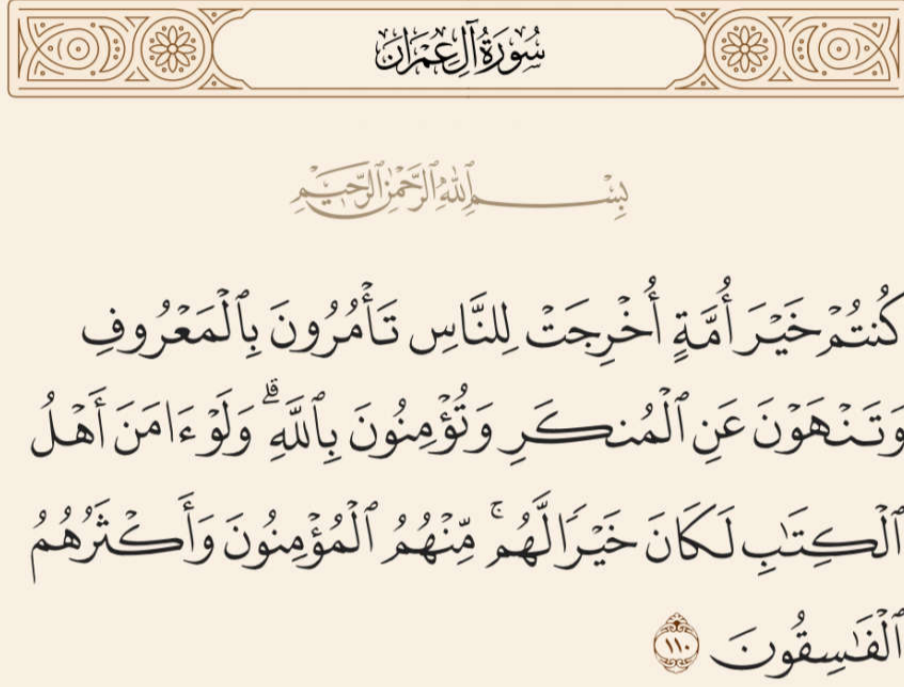 سُورَةُ آلِ عِمْرَانَ
بِسْمِ ٱللَّهِ ٱلرَّحْمَٰنِ ٱلرَّحِيمِ
كُنتُمْ خَيْرَ أُمَّةٍ أُخْرِجَتْ لِلنَّاسِ تَأْمُرُونَ بِٱلْمَعْرُوفِ
وَتَنْهَوْنَ عَنِ ٱلْمُنكَرِ وَتُؤْمِنُونَ بِٱللَّهِ ۗ وَلَوْ ءَامَنَ أَهْلُ
ٱلْكِتَٰبِ لَكَانَ خَيْرًا لَّهُم ۚ مِّنْهُمُ ٱلْمُؤْمِنُونَ وَأَكْثَرُهُمُ
ٱلْفَٰسِقُونَ ١١٠